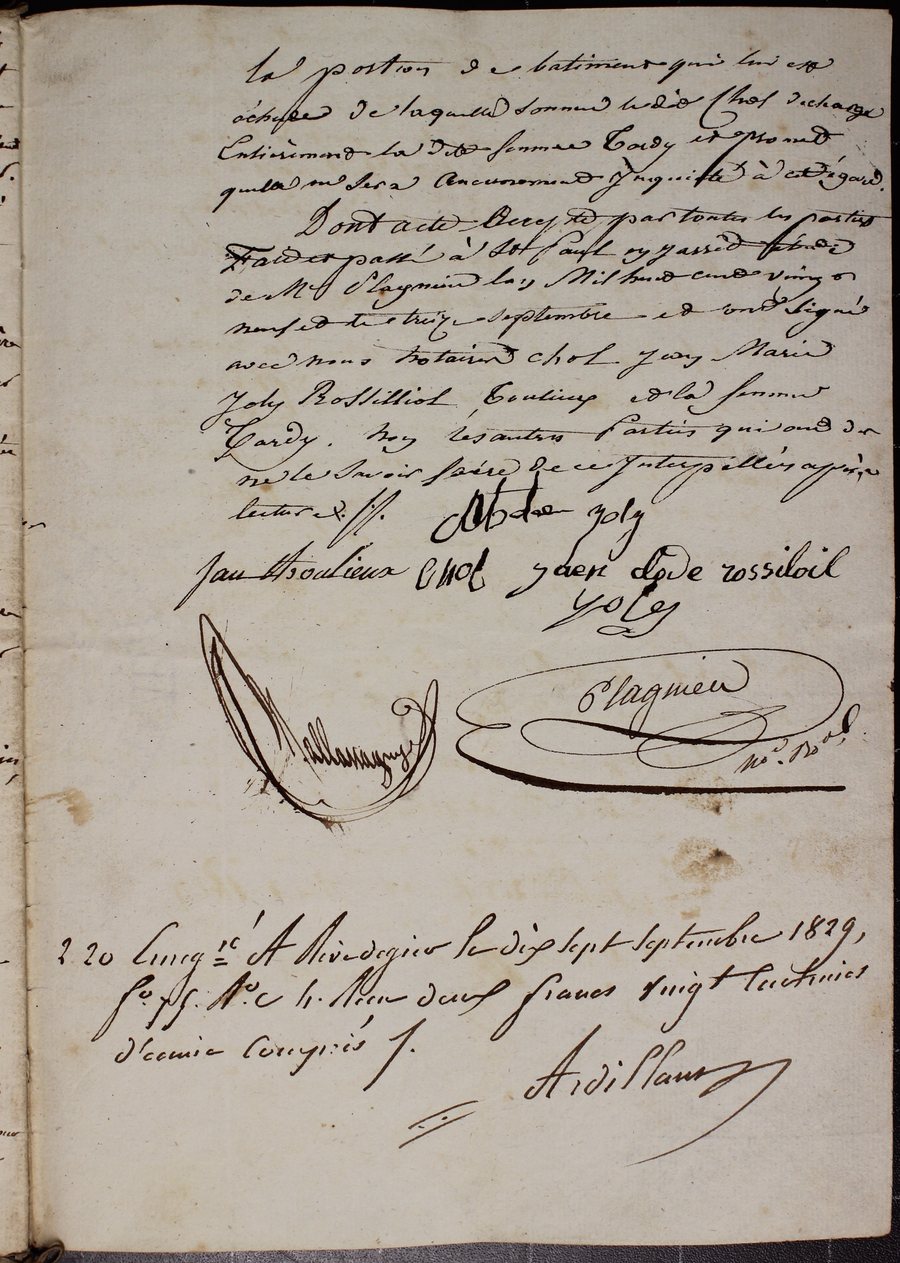 la portion de batiment qui lui est
échue de laquelle somme ledit Chol décharge
Entièrement la dite femme Tardy et promet
quelle ne sera aucunement Inquiété à cet égard.
Dont acte accepté par toutes les parties
Fait et passé à St Paul en jarred étude
de Me Plagnieu lan Mil huit cent vingt
neuf et le treize septembre et ont signé
avec nous notaires chol jean Marie
Joly Rossilliol Thoulieux et la femme
Tardy. non les autres Parties qui ont dit
ne le savoir faire de ce Interpellés après
lecture.
joly
jan thoulieux chol jaen rossiloil
Plagnieu
no. Roal
2 20 Enregré A Rivedegier le dix sept septembre 1829,
fo. Ro. c Reçu deux francs vingt centimes
d'ecime compris
Ardillans